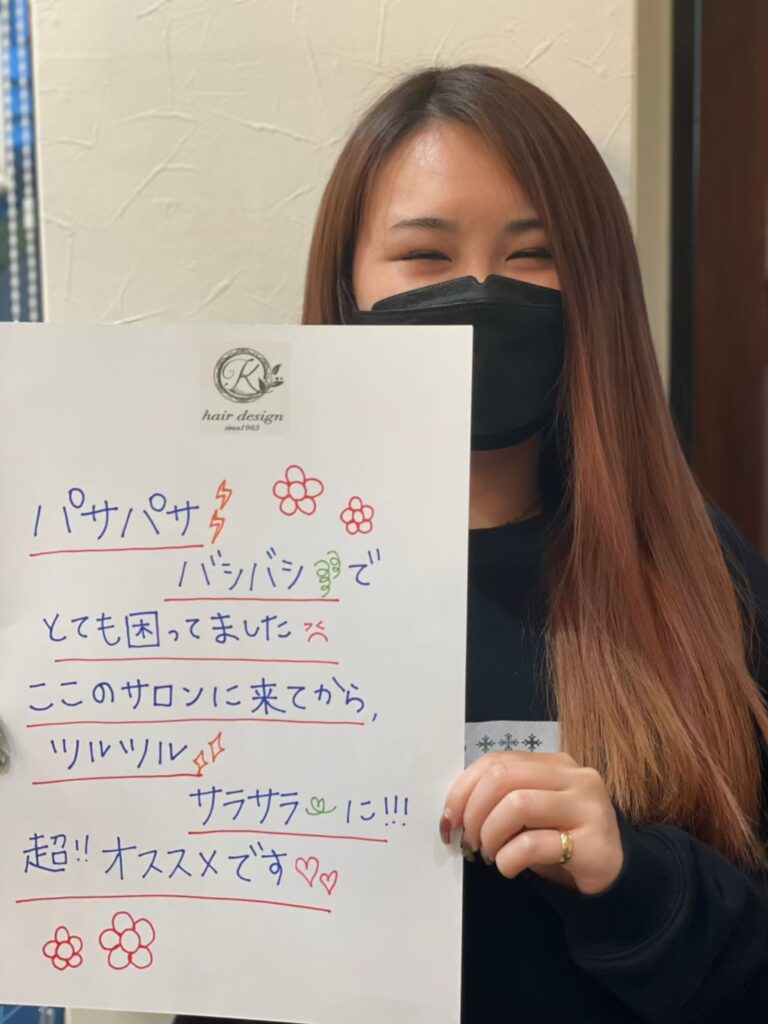 K
hair design
since1965
パサパサ
バシバシで
とても困ってました
ここのサロンに来てから,
ツルツル
サラサラに!!!
超!! オススメです